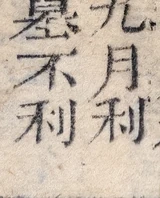 九月利
墓不利